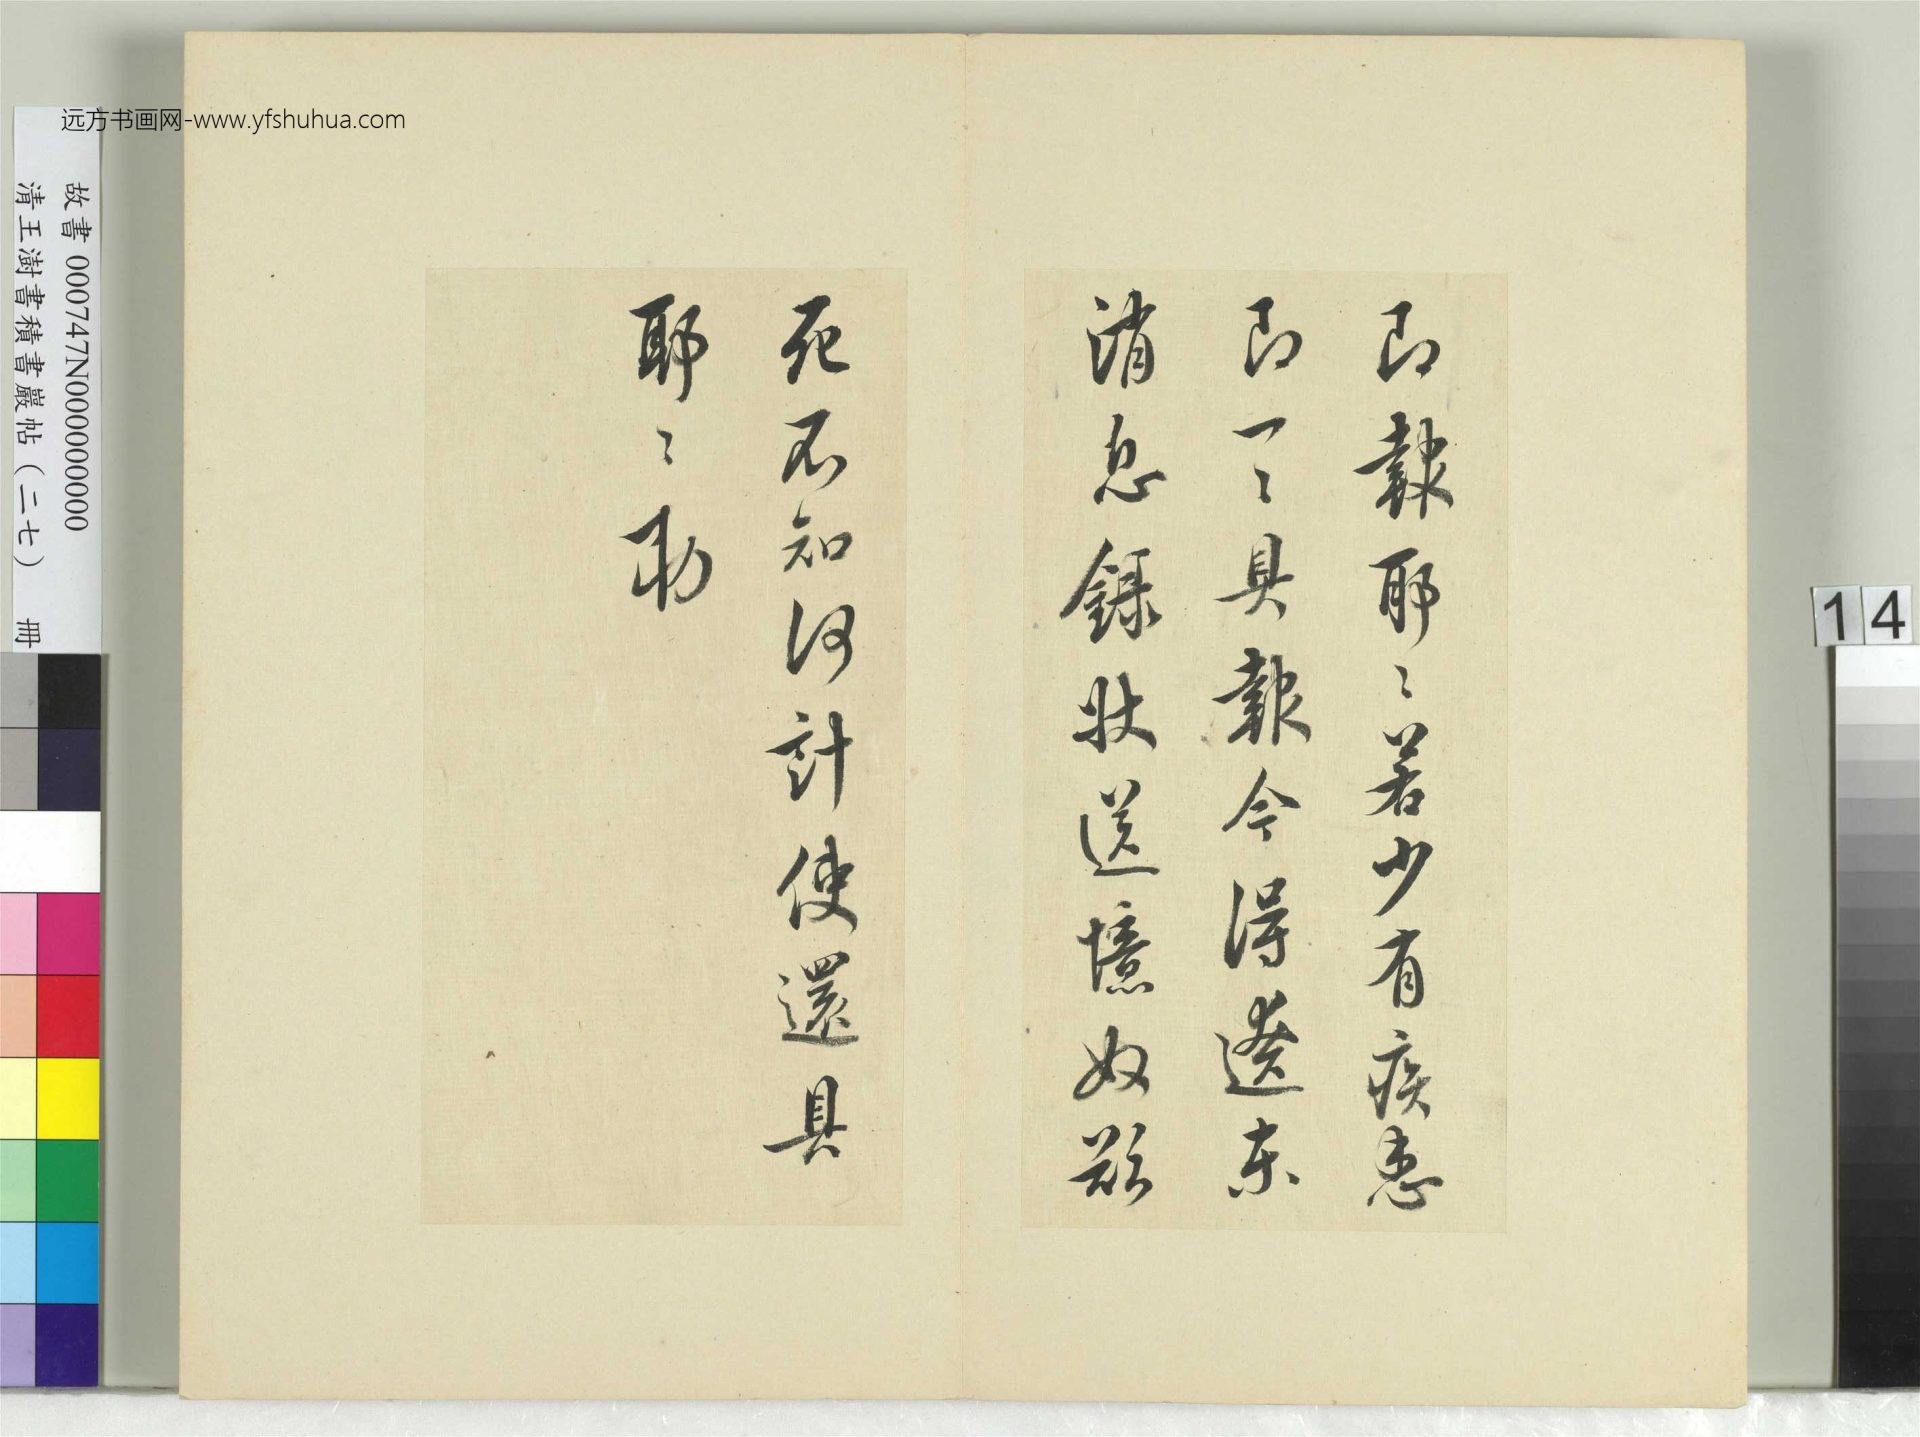 即報耶〻若少有疾患
即一〻具報今得遼東
消息錄狀送憶奴欲
死不知何計使還具
耶〻勑
远方书画网-www.yfshuhua.com
故書 000747N000000000
清王澍書積書巖帖（二七） 冊
14